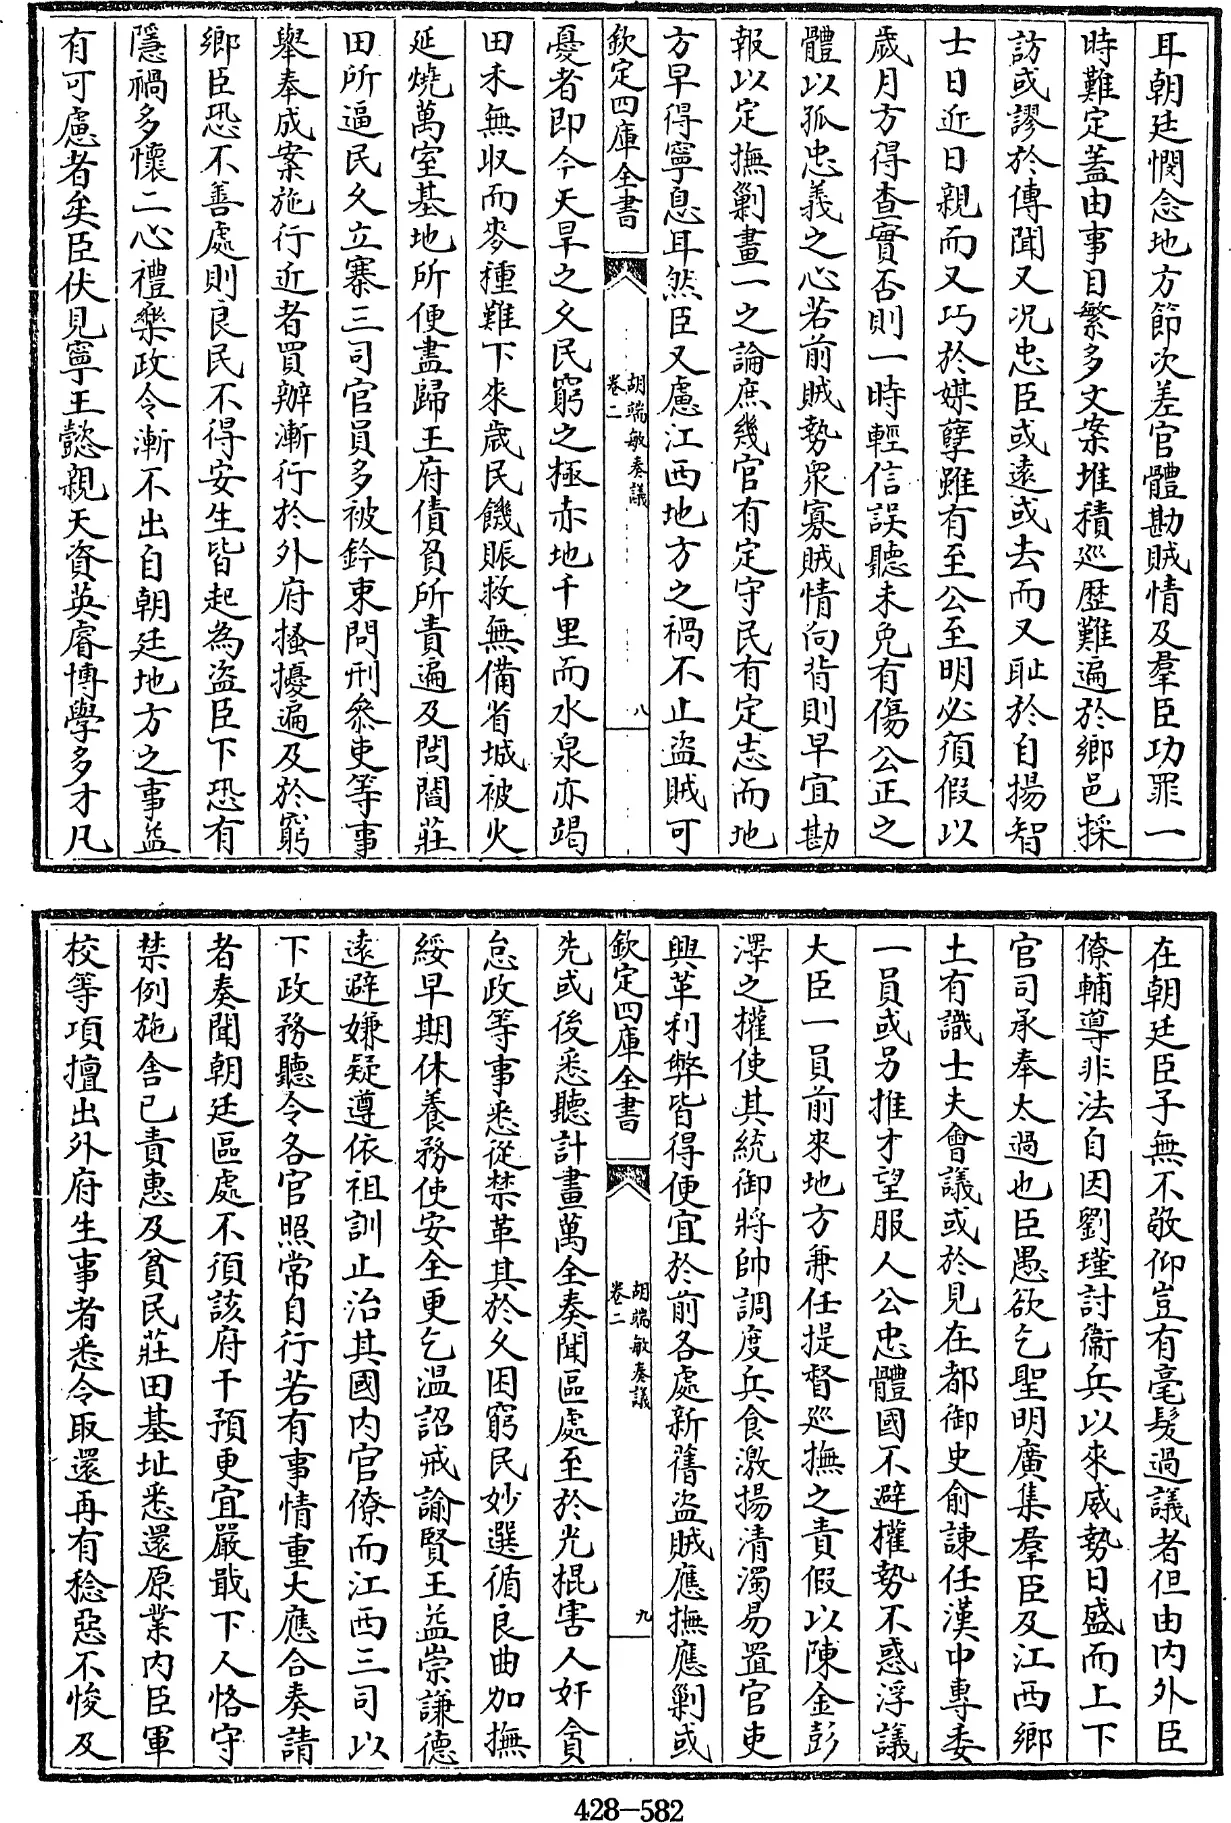 耳朝廷憫念地方節次差官體勘賊情及羣臣功罪一
時難定蓋由事目繁多文案堆積巡歷難遍於鄉邑採
訪或謬於傳聞又況忠臣或遠或去而又耻於自揚智
士日近日親而又巧於媒孽雖有至公至明必須假以
歲月方得查實否則一時輕信誤聽未免有傷公正之
體以孤忠義之心若前賊勢衆寡賊情向背則早宜勘
報以定撫剿畫一之論庶幾官有定守民有定志而地
方早得寧息耳然臣又慮江西地方之禍不止盜賊可
欽定四庫全書
胡端敏奏議
卷二
八
憂者即今天旱之久民窮之極赤地千里而水泉亦竭
田禾無收而麥種難下來歲民饑賑救無備省城被火
延燒萬室基地所便盡歸王府債負所責遍及閭閻莊
田所逼民久立寨三司官員多被鈐束問刑叅吏等事
舉奉成案施行近者買辦漸行於外府搔擾遍及於窮
鄉臣恐不善處則良民不得安生皆起為盜臣下恐有
隱禍多懷二心禮樂政令漸不出自朝廷地方之事益
有可慮者矣臣伏見寧王懿親天資英睿博學多才凡
在朝廷臣子無不敬仰豈有毫髮過議者但由内外臣
僚輔導非法自因劉瑾討衞兵以來威勢日盛而上下
官司承奉太過也臣愚欲乞聖明廣集羣臣及江西鄉
土有識士夫會議或於見在都御史俞諫任漢中專委
一員或另推才望服人公忠體國不避權勢不惑浮議
大臣一員前來地方兼任提督巡撫之責假以陳金彭
澤之權使其統御將帥調度兵食激揚清濁易置官吏
興革利弊皆得便宜於前各處新舊盜賊應撫應剿或
欽定四庫全書
胡端敏奏議
卷二
九
先或後悉聽計畫萬全奏聞區處至於光棍害人奸貪
怠政等事悉從禁革其於久困窮民妙選循良曲加撫
綏早期休養務使安全更乞温詔戒諭賢王益崇謙德
遠避嫌疑遵依祖訓止治其國内官僚而江西三司以
下政務聽令各官照常自行若有事情重大應合奏請
者奏聞朝廷區處不須該府干預更宜嚴戢下人恪守
禁例施舍已責惠及貧民莊田基址悉還原業内臣軍
校等項擅出外府生事者悉令取還再有稔惡不悛及
428-582